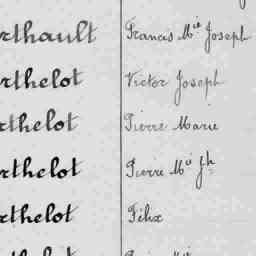 rthault Francis Mie Joseph
rthelot Victor Joseph
rthelot Pierre Marie
rthelot Pierre Mie Jh
rthelot Félix